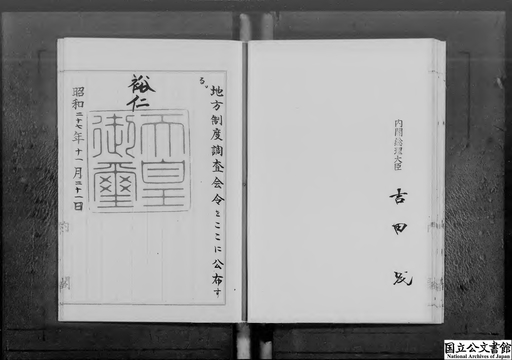 地方制度調査会令をここに公布す
る。
裕仁
天皇御璽
昭和二十七年十一月二十一日
内閣総理大臣
吉田茂
国立公文書館
National Archives of Japan